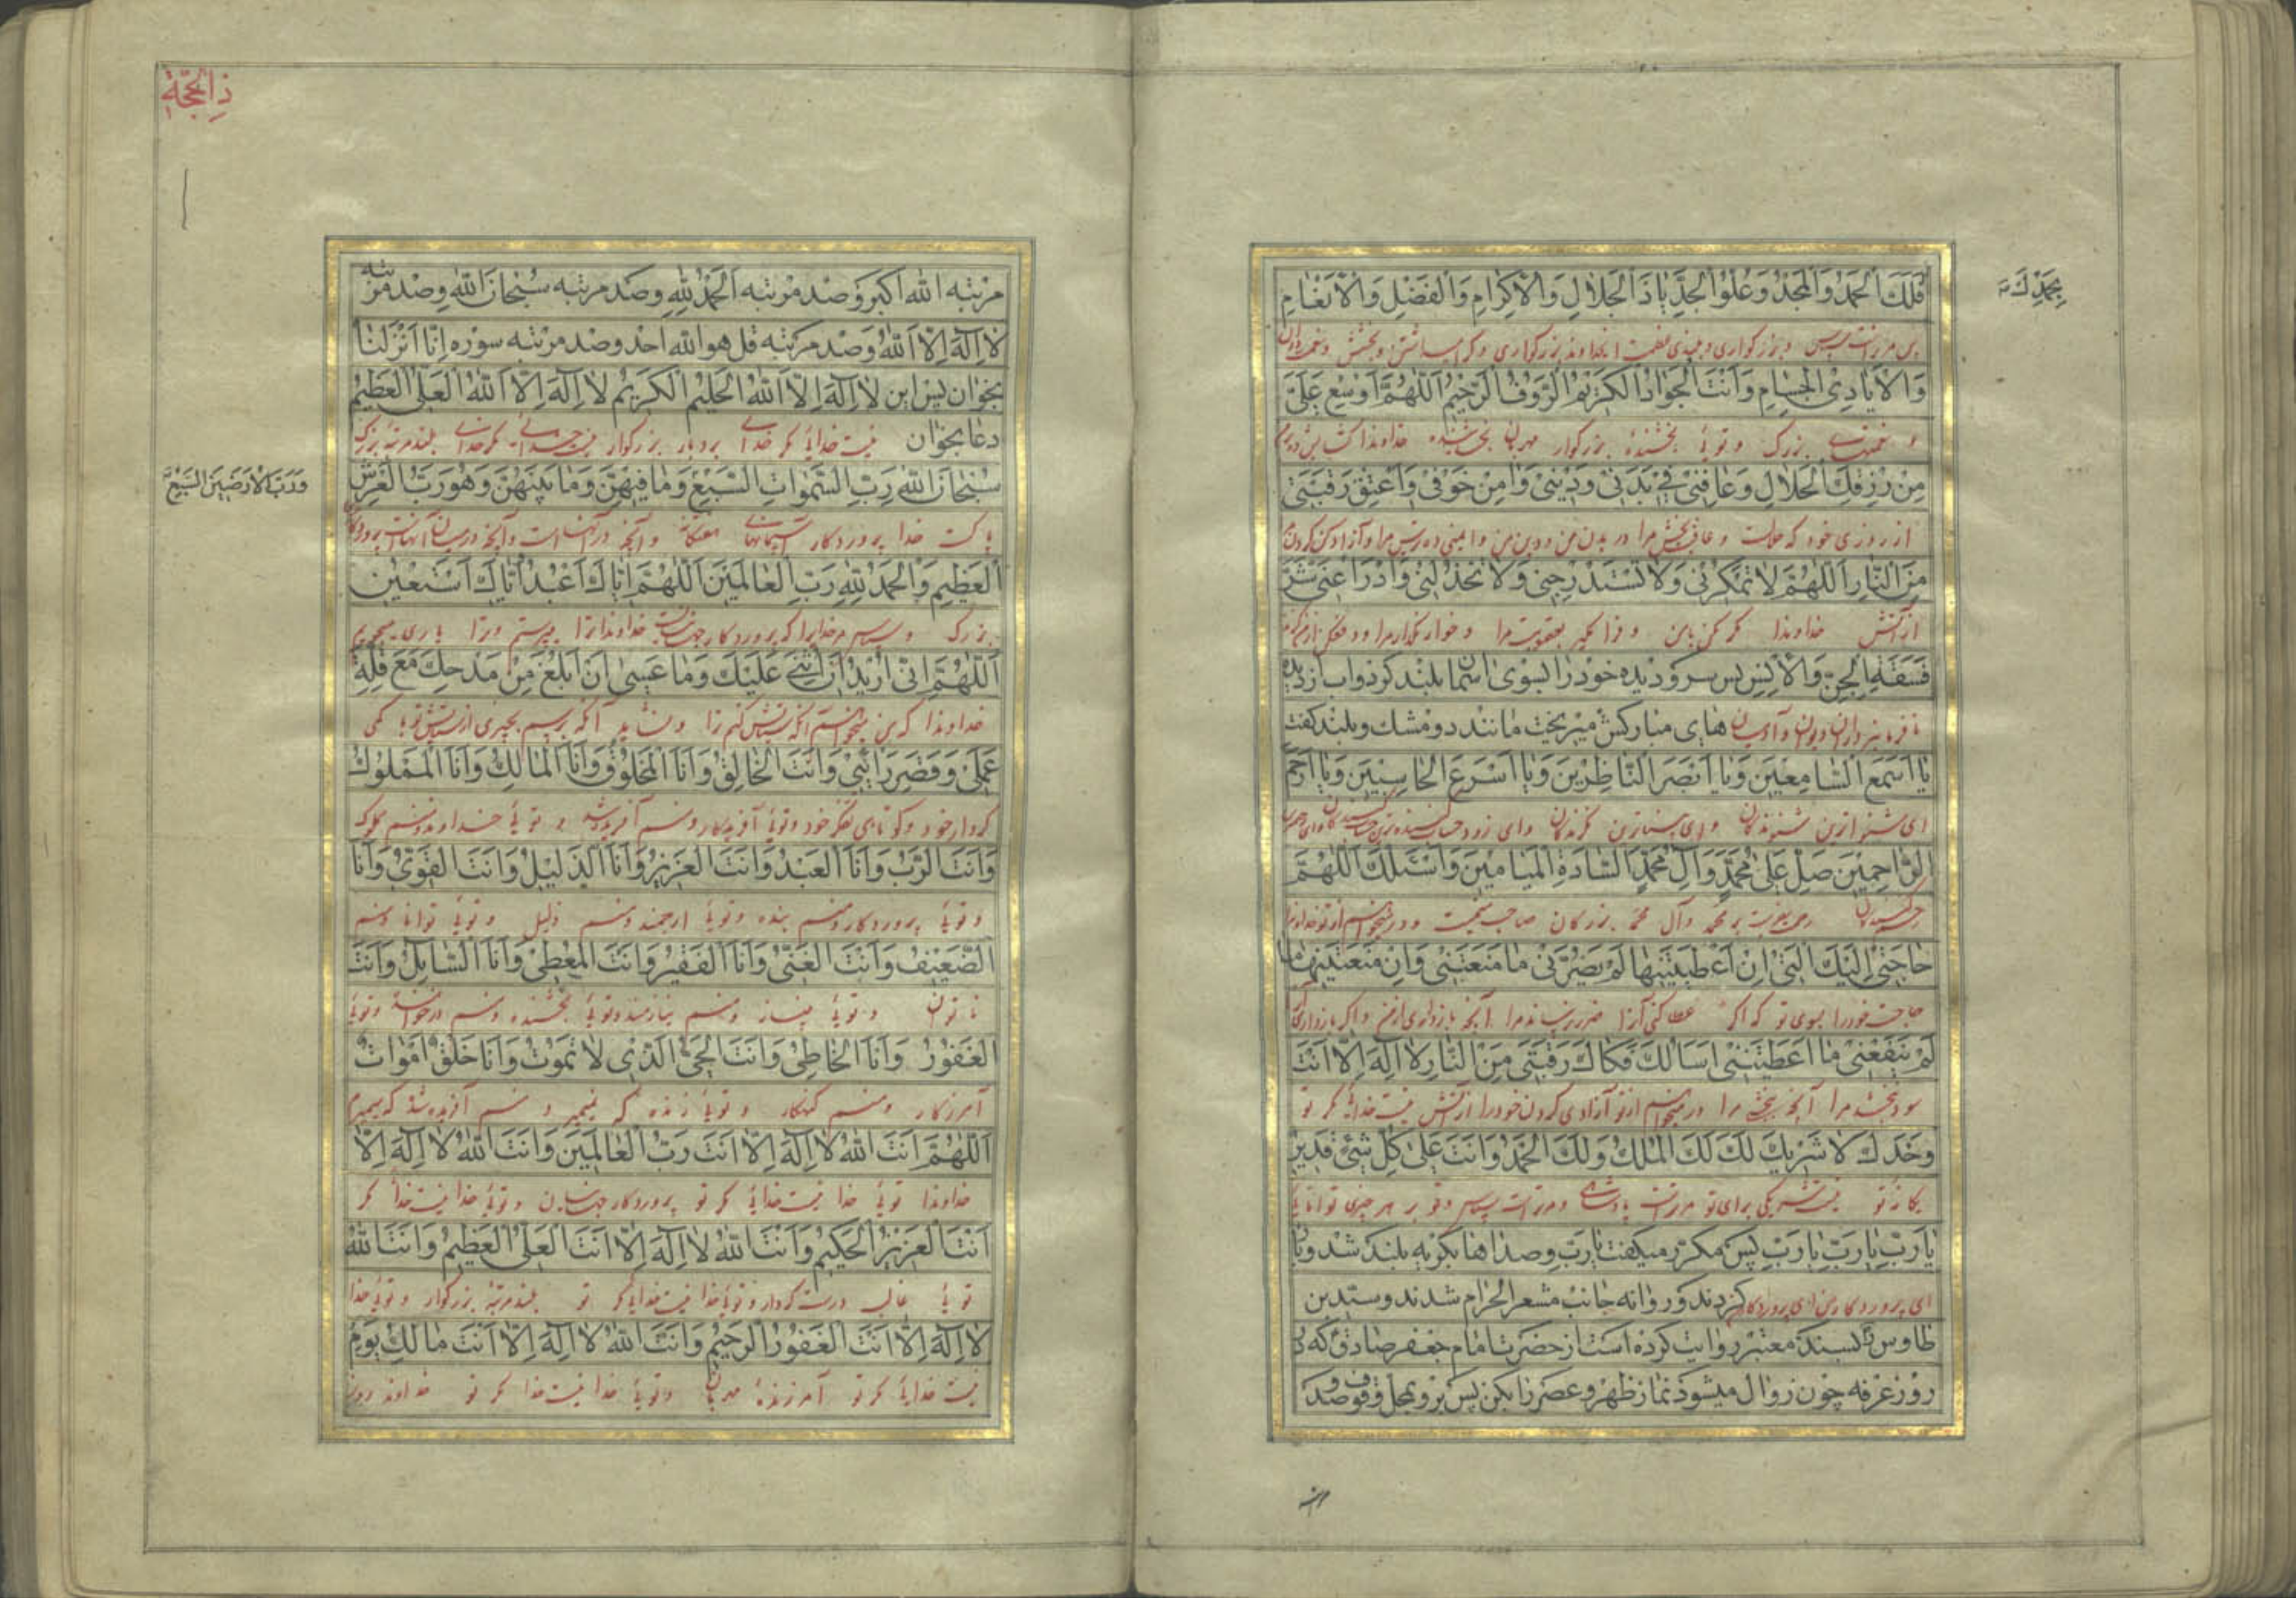 فَلَكَ الْحَمْدُ وَالْمَجْدُ وَعُلُوُّ الْجَدِّ يَا ذَا الْجَلَالِ وَالْاِكْرَامِ وَالْفَضْلِ وَالْاِنْعَامِ
بِحَمْدِكَ
وَالْاَيَادِى الْجِسَامِ وَاَنْتَ الْجَوَادُ الْكَرِيْمُ الرَّؤُفُ الرَّحِيْمُ اَللّٰهُمَّ اَوْسِعْ عَلَىَّ
و نعمتهای بزرگ و توئی بخشندهٔ بزرگوار مهربان بخشاینده خداوندا
مِنْ رِزْقِكَ الْحَلَالِ وَعَافِنِىْ فِىْ بَدَنِىْ وَدِيْنِىْ وَاٰمِنْ خَوْفِىْ وَاَعْتِقْ رَقَبَتِىْ
از روزی خود که حلالست و عافیت بخش مرا در بدن من و دین من و ایمنی ده ترس مرا و آزاد کن گردن
مِنَ النَّارِ اَللّٰهُمَّ لَا تَمْكُرْ بِىْ وَلَا تَسْتَدْرِجْنِىْ وَلَا تَخْذُلْنِىْ وَادْرَاْ عَنِّىْ شَرَّ
از آتش خداوندا مکر مکن بامن و فرا مگیر بعقوبت مرا و خوار مگذار مرا و دفع کن از من
فَسَقَةِ الْجِنِّ وَالْاِنْسِ پس سر و دیده خود را بسوی آسمان بلند کرد و آب از دیده
نافرمانبرداران دیوان و آدمیان های مبارکش میریخت مانند دو مشك و بلند گفت
يَا اَسْمَعَ السَّامِعِيْنَ وَيَا اَبْصَرَ النَّاظِرِيْنَ وَيَا اَسْرَعَ الْحَاسِبِيْنَ وَيَا اَرْحَمَ
ای شنواترین شنوندگان و ای بیناترین نگرندگان و ای زود حساب کننده ترین
الرَّاحِمِيْنَ صَلِّ عَلٰى مُحَمَّدٍ وَاٰلِ مُحَمَّدٍ السَّادَةِ الْمَيَامِيْنَ وَاَسْئَلُكَ اَللّٰهُمَّ
رحمت بفرست بر محمد و آل محمد بزرگان صاحب میمنت و درمیخواهم از تو خداوندا
حَاجَتِىْ اِلَيْكَ الَّتِىْ اِنْ اَعْطَيْتَنِيْهَا لَمْ يَضُرَّنِىْ مَا مَنَعْتَنِىْ وَاِنْ مَنَعْتَنِيْهَا
حاجت خود را بسوی تو که اگر عطا کنی آنرا ضرر نرساند مرا آنچه بازداری از من و اگر بازداری
لَمْ يَنْفَعْنِىْ مَا اَعْطَيْتَنِىْ اَسْاَلُكَ فَكَاكَ رَقَبَتِىْ مِنَ النَّارِ لَا اِلٰهَ اِلَّا اَنْتَ
سود نبخشد مرا آنچه بخشی مرا درمیخواهم از تو آزادی گردن خود را از آتش نیست خدائی مگر تو
وَحْدَكَ لَا شَرِيْكَ لَكَ لَكَ الْمُلْكُ وَلَكَ الْحَمْدُ وَاَنْتَ عَلٰى كُلِّ شَىْءٍ قَدِيْرٌ
یگانهٔ تو نیست شریکی برای تو مرتراست پادشاهی و مرتراست سپاس و تو بر هر چیزی توانا
يَا رَبِّ يَا رَبِّ يَا رَبِّ پس مکرّر میگفت يَا رَبِّ و صداها بگریه بلند شد
ای پروردگار من ای پروردگار کردند و روانه جانب مشعر الحرام شدند و سیّد بن
طاوس بسند معتبر روایت کرده است از حضرت امام جعفر صادق که
روز عرفه چون زوال میشود نماز ظهر و عصر را بکن پس برو بمحل وقوف و صد
مرتبه
ذا الحجّة
مرتبه اللّٰه اکبر و صد مرتبه اَلْحَمْدُ لِلّٰهِ و صد مرتبه سُبْحَانَ اللّٰهِ و صد مرتبه
لَا اِلٰهَ اِلَّا اللّٰهُ و صد مرتبه قل هو اللّٰه احد و صد مرتبه سوره اِنَّا اَنْزَلْنَا
بخوان پس این لَا اِلٰهَ اِلَّا اللّٰهُ الْحَلِيْمُ الْكَرِيْمُ لَا اِلٰهَ اِلَّا اللّٰهُ الْعَلِىُّ الْعَظِيْمُ
دعا بخوان نیست خدائی مگر خدای بردبار بزرگوار نیست خدائی مگر خدای بلند مرتبهٔ بزرگ
سُبْحَانَ اللّٰهِ رَبِّ السَّمٰوَاتِ السَّبْعِ وَمَا فِيْهِنَّ وَمَا بَيْنَهُنَّ وَهُوَ رَبُّ الْعَرْشِ
وَرَبِّ الْاَرَضِيْنَ السَّبْعِ
پاکست خدا پروردگار آسمانهای هفتگانه و آنچه در آنهاست و آنچه در میان آنهاست
الْعَظِيْمِ وَالْحَمْدُ لِلّٰهِ رَبِّ الْعَالَمِيْنَ اَللّٰهُمَّ اِيَّاكَ اَعْبُدُ اِيَّاكَ اَسْتَعِيْنُ
بزرگ و سپاس مر خدا را که پروردگار جهانیانست خداوندا ترا میپرستم و ترا یاری میجویم
اَللّٰهُمَّ اِنِّىْ اُرِيْدُ اَنْ اُثْنِىَ عَلَيْكَ وَمَا عَسٰى اَنْ اَبْلُغَ مِنْ مَدْحِكَ مَعَ قِلَّةِ
خداوندا که من میخواهم آنکه ستایش کنم ترا و نشاید آنکه برسم بچیزی از ستایش تو با کمی
عَمَلِىْ وَقِصَرِ رَاْيِىْ وَاَنْتَ الْخَالِقُ وَاَنَا الْمَخْلُوْقُ وَاَنْتَ الْمَالِكُ وَاَنَا الْمَمْلُوْكُ
کردار خود و کوتاهی فکر خود و توئی آفریدگار و منم آفریده شده و توئی خداوند و منم مملوک
وَاَنْتَ الرَّبُّ وَاَنَا الْعَبْدُ وَاَنْتَ الْعَزِيْزُ وَاَنَا الذَّلِيْلُ وَاَنْتَ الْقَوِىُّ وَاَنَا
و توئی پروردگار و منم بنده و توئی ارجمند و منم ذلیل و توئی توانا و منم
الضَّعِيْفُ وَاَنْتَ الْغَنِىُّ وَاَنَا الْفَقِيْرُ وَاَنْتَ الْمُعْطِىْ وَاَنَا السَّائِلُ وَاَنْتَ
ناتوان و توئی بینیاز و منم نیازمند و توئی بخشنده و منم درخواهنده و توئی
الْغَفُوْرُ وَاَنَا الْخَاطِئُ وَاَنْتَ الْحَىُّ الَّذِىْ لَا تَمُوْتُ وَاَنَا خَلْقٌ اَمُوْتُ
آمرزگار و منم گنهکار و توئی زنده که نمیمیرد و منم آفریده شده که میمیرم
اَللّٰهُمَّ اَنْتَ اللّٰهُ لَا اِلٰهَ اِلَّا اَنْتَ رَبُّ الْعَالَمِيْنَ وَاَنْتَ اللّٰهُ لَا اِلٰهَ اِلَّا
خداوندا توئی خدا نیست خدائی مگر تو پروردگار جهانیان و توئی خدا نیست خدا مگر
اَنْتَ الْعَزِيْزُ الْحَكِيْمُ وَاَنْتَ اللّٰهُ لَا اِلٰهَ اِلَّا اَنْتَ الْعَلِىُّ الْعَظِيْمُ وَاَنْتَ اللّٰهُ
توئی غالب درست کردار و توئی خدا نیست خدائی مگر تو بلند مرتبهٔ بزرگوار و توئی خدا
لَا اِلٰهَ اِلَّا اَنْتَ الْغَفُوْرُ الرَّحِيْمُ وَاَنْتَ اللّٰهُ لَا اِلٰهَ اِلَّا اَنْتَ مَالِكُ يَوْمِ
نیست خدائی مگر تو آمرزندهٔ مهربان و توئی خدا نیست خدا مگر تو خداوند روز